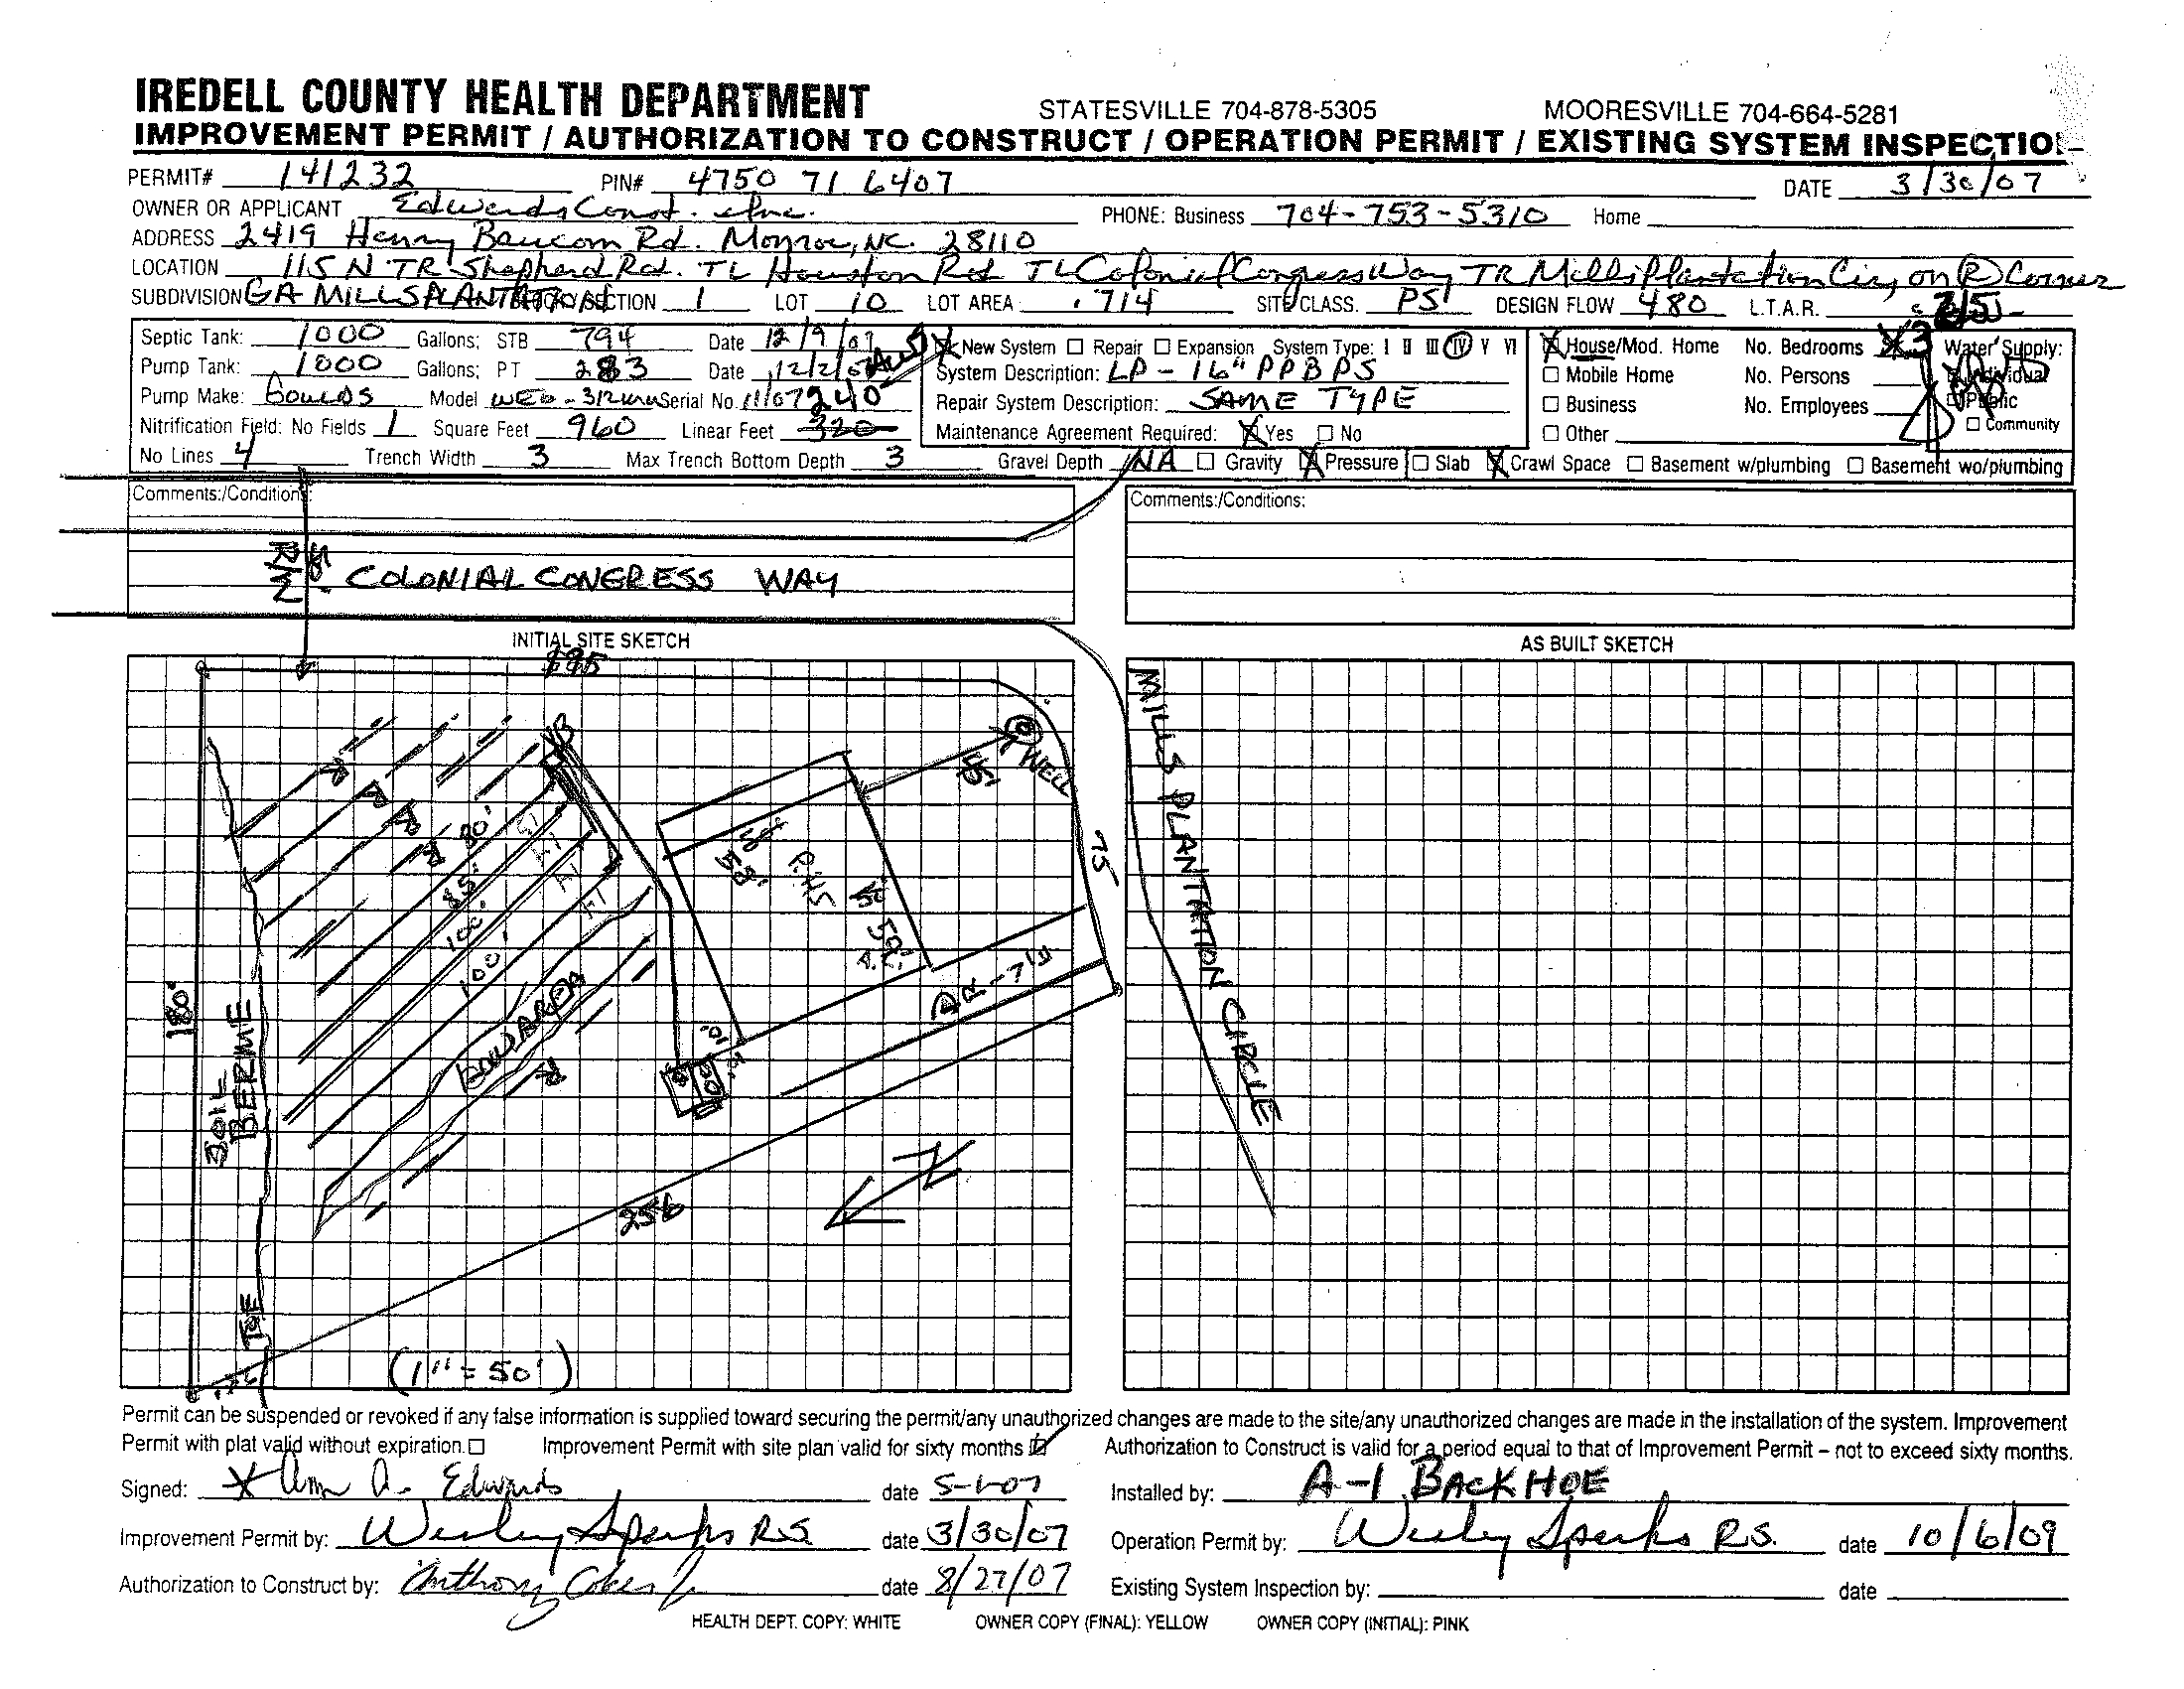 IREDELL COUNTY HEALTH DEPARTMENT STATESVILLE 704-878-5305 MOORESVILLE 704-664-5281
IMPROVEMENT PERMIT / AUTHORIZATION TO CONSTRUCT / OPERATION PERMIT / EXISTING SYSTEM INSPECTION
PERMIT# 141232 PIN# 4750 71 6407 DATE 3/30/07
OWNER OR APPLICANT Edwards Const. Inc. PHONE: Business 704-753-5310 Home
ADDRESS 2419 Henry Baucom Rd. Monroe, NC. 28110
LOCATION 115 N TR Shepherd Rd. TL Houston Rd TL Colonial Congress Way TR Mills Plantation Cir, on (R) Corner
SUBDIVISION GA MILLS PLANTATION SECTION 1 LOT 10 LOT AREA .714 SITE CLASS. PS DESIGN FLOW 480 L.T.A.R.
Septic Tank: 1000 Gallons; STB 794 Date 12/9/07 New System Repair Expansion System Type: I II III IV V VI House/Mod. Home No. Bedrooms 3 Water Supply:
Pump Tank: 1000 Gallons; PT 283 Date 12/2/07 System Description: LP - 16" PPBPS Mobile Home No. Persons Individual
Pump Make: Goulds Model Serial No. 11/07 240 Repair System Description: SAME TYPE Business No. Employees Public
Nitrification Field: No Fields 1 Square Feet 960 Linear Feet 320 Maintenance Agreement Required: Yes No Other Community
No Lines 4 Trench Width 3 Max Trench Bottom Depth 3 Gravel Depth NA Gravity Pressure Slab Crawl Space Basement w/plumbing Basement wo/plumbing
Comments:/Conditions: Comments:/Conditions:
R/W
COLONIAL CONGRESS WAY
INITIAL SITE SKETCH AS BUILT SKETCH
WELL
MILLS PLANTATION CIRCLE
75
R R R R
80'
85'
100'
100'
58'
50'
DR-7W
10'
R
180'
SOIL BERME
TOE
256
N
(1" = 50')
Permit can be suspended or revoked if any false information is supplied toward securing the permit/any unauthorized changes are made to the site/any unauthorized changes are made in the installation of the system. Improvement
Permit with plat valid without expiration. Improvement Permit with site plan valid for sixty months Authorization to Construct is valid for a period equal to that of Improvement Permit – not to exceed sixty months.
Signed: x Ann A. Edwards date 5-1-07 Installed by: A-1 BACKHOE
Improvement Permit by: Wesley Sparks R.S. date 3/30/07 Operation Permit by: Wesley Sparks R.S. date 10/6/09
Authorization to Construct by: Anthony date 8/27/07 Existing System Inspection by: date
HEALTH DEPT. COPY: WHITE OWNER COPY (FINAL): YELLOW OWNER COPY (INITIAL): PINK